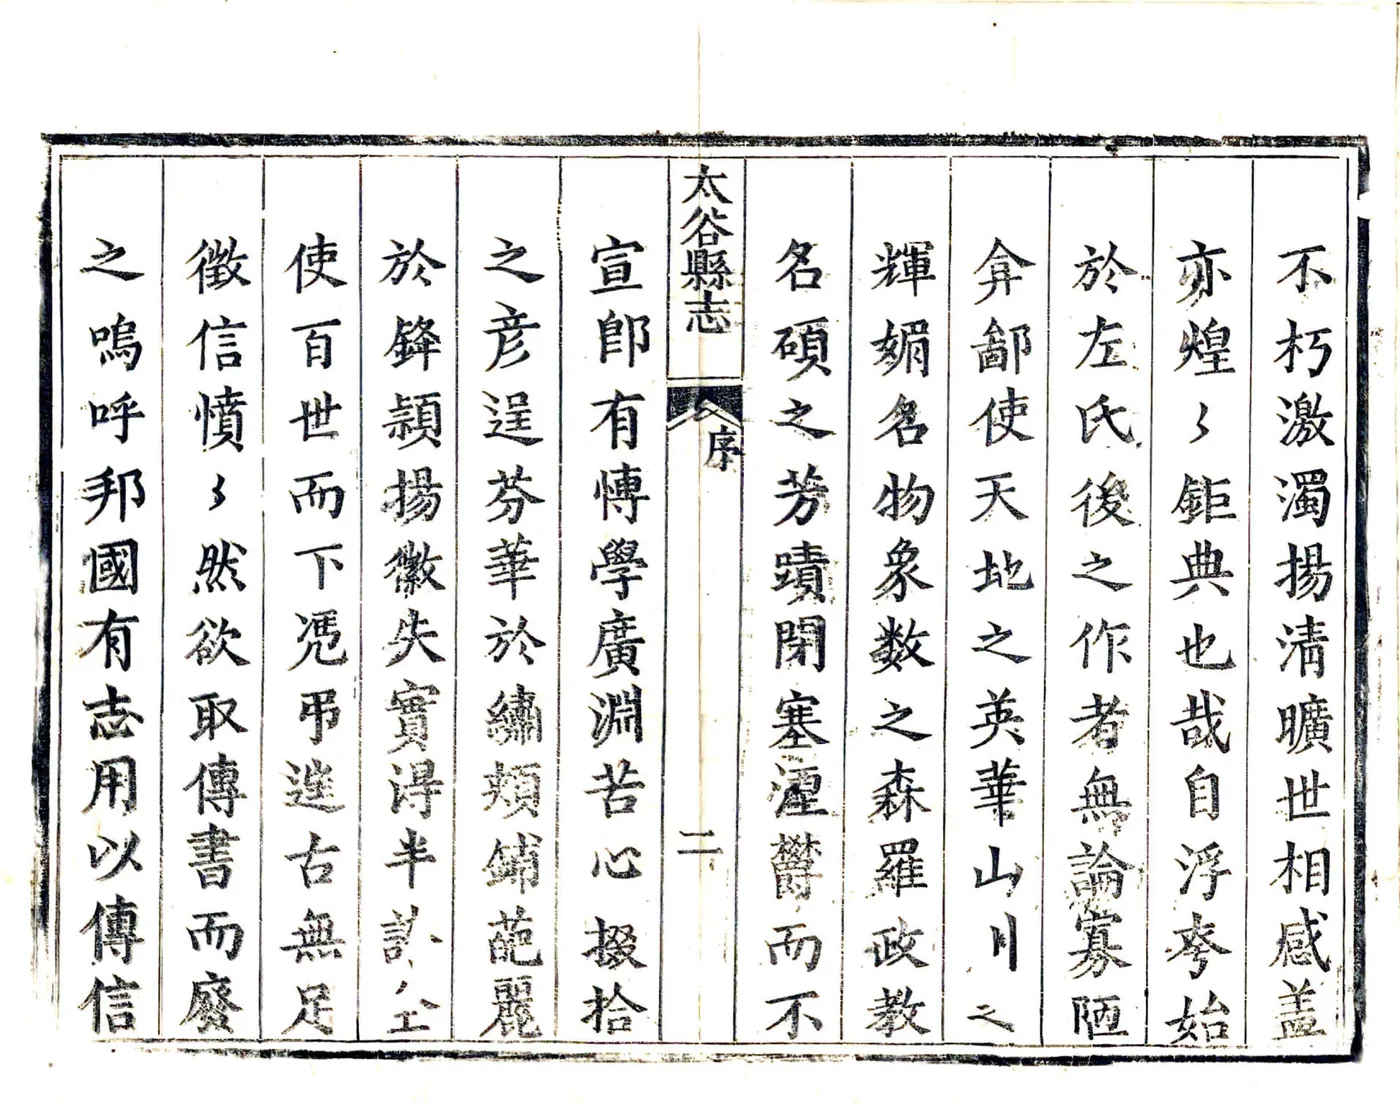 不朽激濁揚清曠世相感盖
亦煌〻鉅典也哉自浮夸始
於左氏後之作者無論寡陋
弇鄙使天地之英華山川之
輝媚名物象数之森羅政教
名碩之芳蹟閉塞湮欝而不
太谷縣志
序
二
宣即有愽學廣淵苦心掇拾
之彥逞芬華於繡頰鋪葩麗
於鋒頴揚徽失實淂半
使百世而下凴弔邃古無足
徵信憤〻然欲取傳書而廢
之嗚呼邦國有志用以傳信